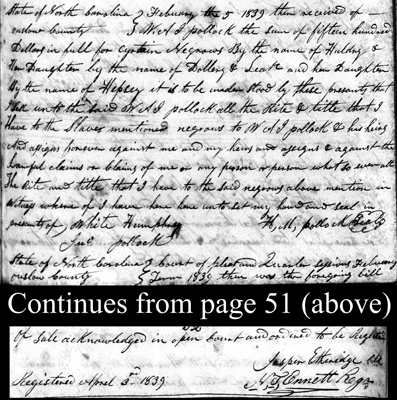 State of North Carolina } February the 5 1839 then received of
onslow County } W A J pollock the sum of fifteen hundred
Dollars in full for Certain Negrows By the name of Huldey &
Her Daughter by the name of Dollery & Leah and her Daughter
By the name of Hepsey it is to be understood by these presents that
I unto the said W A J pollock all the Rite & title that I
Have to the Slaves mentioned negrows to W A J pollock & his heirs
And assigns forever against me and my heirs and assigns & against the
Lawful claims or Claims of me or any person or persons what so ever all
The Rite and title that I have to the said negrows above mention in
Witness whereof I have here unto set my hand and seal in
presents of White Humphrey H, M, pollock Seal
Jno. pollock
State of North Carolina } Court of pleas and Quarter sessions February
onslow County } Term 1839 then was the foregoing bill
Continues from page 51 (above)
52
Of Sale acknowledged in open Court and ordered to be Registered
Jasper Etheridge Clk
Registered April 3rd 1839. Ennett Regr